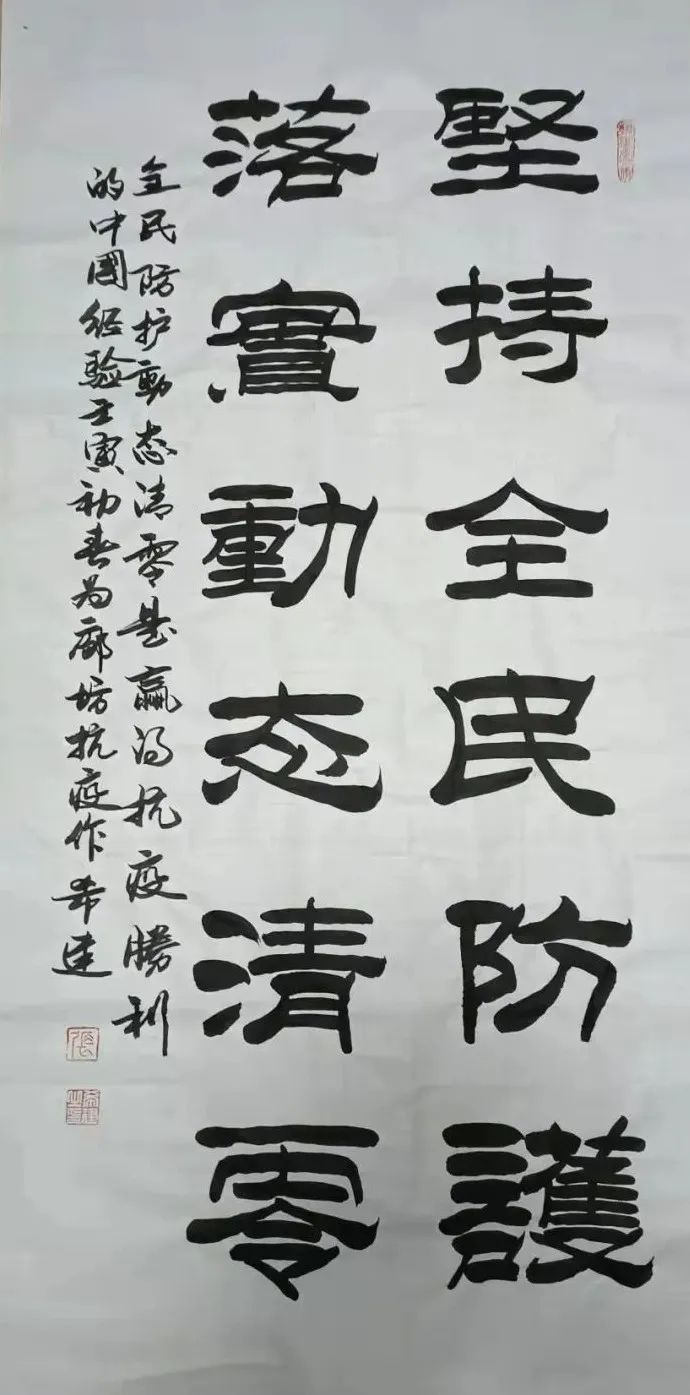 堅持全民防護
落實動态清零
全民防护動态清零是赢得抗疫勝利
的中國经验壬寅初春为廊坊抗疫作希建
張